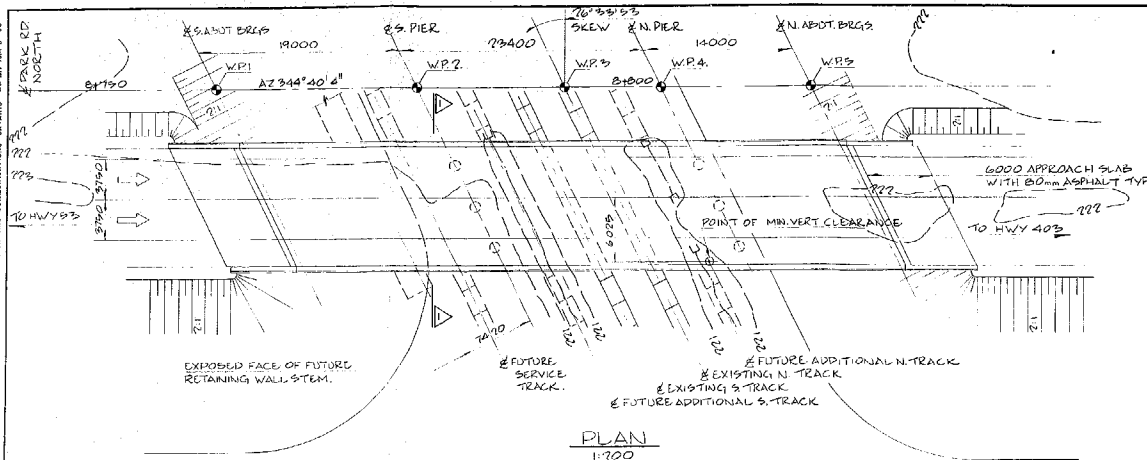 ℄ PARK RD.
NORTH
℄ S. ABUT BRGS
℄ S. PIER
26°33'53
SKEW
℄ N. PIER
℄ N. ABUT. BRGS.
222
19000
23400
14000
W.P.1
W.P.2.
W.P.3
W.P.4.
W.P.5
8+750
AZ 344°40'4"
8+800
2:1
2:1
2:1
222
222
223
3750 3750
TO HWY 53
222
6000 APPROACH SLAB
WITH 80mm ASPHALT TYP.
222
POINT OF MIN. VERT CLEARANCE
TO HWY 403
2:1
7420
122
122
122
122
EXPOSED FACE OF FUTURE
RETAINING WALL STEM.
℄ FUTURE
SERVICE
TRACK.
℄ FUTURE ADDITIONAL N. TRACK
℄ EXISTING N. TRACK
℄ EXISTING S. TRACK
℄ FUTURE ADDITIONAL S. TRACK
PLAN
1:200